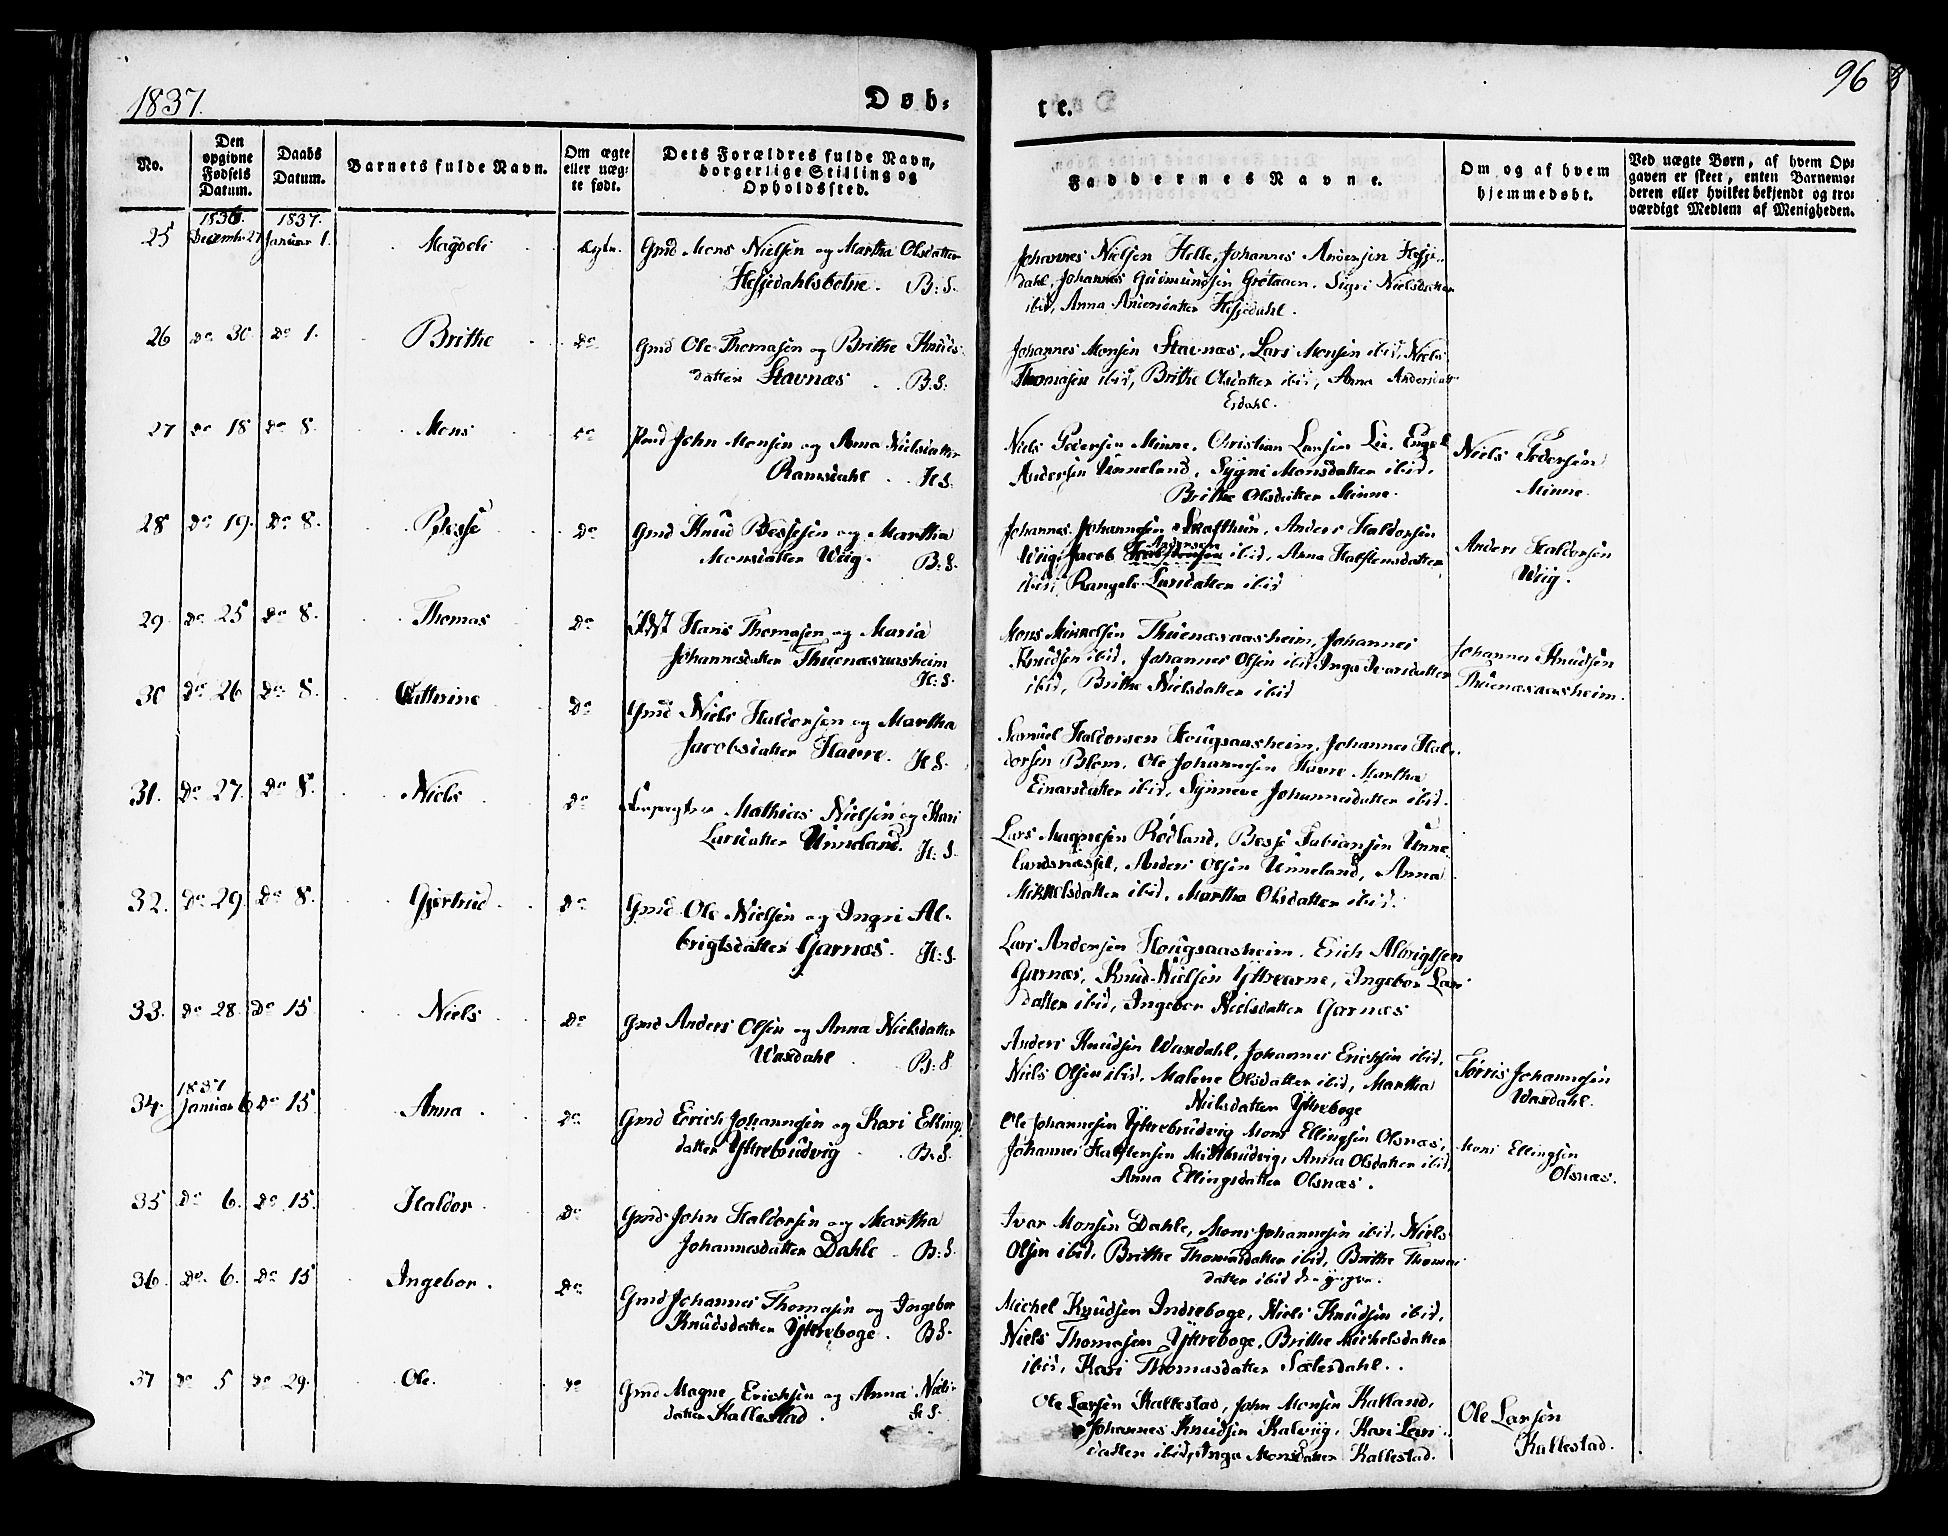 1837.
Døb-
te.
96
No.
Den opgivne Fødsels Datum.
Daabs Datum.
Barnets fulde Navn.
Om ægte eller uægte født.
Dets Forældres fulde Navn, borgerlige Stilling og Opholdssted.
Faddernes Navne.
Om og af hvem hjemmedøbt.
Ved uægte Børn, af hvem Opgaven er skeet, enten Barnemoderen eller hvilket bekjendt og troværdigt Medlem af Menigheden.
1836. 1837.
25 Decemb. 27 Januar 1. Magdeli Ægte. Gmd Mons Nielsen og Martha Olsdatter
Hesjedahlsbotne. B: S.
Johannes Nielsen Helle, Johannes Andersen Hesje-
dahl, Johannes Gudmundsen Grøtaaen. Sigri Nielsdatter
ibid, Anna Andersdatter Hesjedahl.
26 Do 30. Do 1. Brithe Do Gmd Ole Thomasen og Brithe Knuds-
datter Stavnæs B.S.
Johannes Monsen Stavnæs, Lars Monsen ibid, Niels
Thomasen ibid, Brithe Olsdatter ibid, Anna Andersdatt
Esdahl.
27 Do 18 Do 8. Mons Do John Monsen og Anna Nielsdatter
Ramsdahl H S.
Niels Pedersen Minne, Christian Larsen Lie, Engel
Andersen Unneland, Sygni Monsdatter ibid,
Brithe Olsdatter Minne.
Niels Pedersen
Minne.
28 Do 19. Do 8. Besse Do Gmd Knud Bessesen og Martha
Monsdatter Wiig. B: S.
Johannes Johannesen Skafthun, Anders Haldorsen
Andersen
Wiig, Jacob ibid, Anna Halstensdatter
ibid, Rangele Larsdatter ibid
Anders Haldorsen
Wiig.
29. Do 25 Do 8. Thomas Do Idst Hans Thomasen og Maria
Johannesdatter Thuenæsaasheim
H: S.
Mons Mikkelsen Thuenæsaasheim, Johannes
Knudsen ibid, Johannes Olsen ibid, Inga Ivarsdatter
ibid, Brithe Nielsdatter ibid
Johannes Knudsen
Thuenæsaasheim.
30 Do 26 Do 8. Cathrine Do Gmd Niels Haldorsen og Martha
Jacobsdatter Havre. H S.
Samuel Haldorsen Hougsaasheim, Johannes Hal-
dorsen Blom, Ole Johannesen Havre Martha
Einarsdatter ibid, Synneve Johannesdatter ibid.
31. Do 27. Do 8. Niels Do Mathias Nielsen og Kari
Larsdatter Unneland. H: S.
Lars Magnesen Rødland, Besse Fabiansen Unne-
landsnæsset, Anders Olsen Unneland, Anna
Mikkelsdatter ibid, Martha Olsdatter ibid.
32. Do 29. Do 8. Gjertrud Do Gmd Ole Nielsen og Ingri Al-
brigtsdatter Garnæs. H: S.
Lars Andersen Hougsaasheim. Erich Albrigtsen
Garnæs, Knud Nielsen Yttrearne, Ingebor Lars-
datter ibid, Ingebor Nielsdatter Garnæs
33. Do 28. Do 15 Niels Do Gmd Anders Olsen og Anna Nielsdatter
Waxdahl B: S
Anders Knudsen Waxdahl, Johannes Erichsen ibid,
Niels Olsen ibid, Malene Olsdatter ibid, Martha
Nielsdatter Yttreboge
Tørris Johannesen
Waxdahl.
1837
34. Januar 6 Do 15 Anna Do Gmd Erich Johannesen og Kari Elling-
datter Yttrebrudvig B. S.
Ole Johannesen Yttrebrudvig Mons Ellingsen Olsnæs,
Johannes Halstensen Midtbrudvig, Anna Olsdatter ibid,
Anna Ellingsdatter Olsnæs.
Mons Ellingsen
Olsnæs.
35 Do 6. Do 15. Haldor Do Gmd John Haldorsen og Martha
Johannesdatter Dahle B: S.
Ivar Monsen Dahle, Mons Johannesen ibid, Niels
Olsen ibid, Brithe Thomasdatter ibid, Brithe Thomas
datter ibid den yngre.
36. Do. 6. Do 15 Ingebor. Do Gmd Johannes Thomasen og Ingebor
Knudsdatter Yttreboge. B S.
Michel Knudsen Indreboge, Niels Knudsen ibid,
Niels Thomasen Yttreboge, Brithe Michelsdatter
ibid, Kari Thomasdatter Sælesdahl.
37 Do 5 Do 29. Ole. Do Gmd Magne Erichsen og Anna Niels-
datter Kallestad. H S.
Ole Larsen Kallestad, John Monsen Kalland,
Johannes Knudsen Kalviig, Kari Lars-
datter ibid, Inga Monsdatter Kallestad.
Ole Larsen
Kallestad.